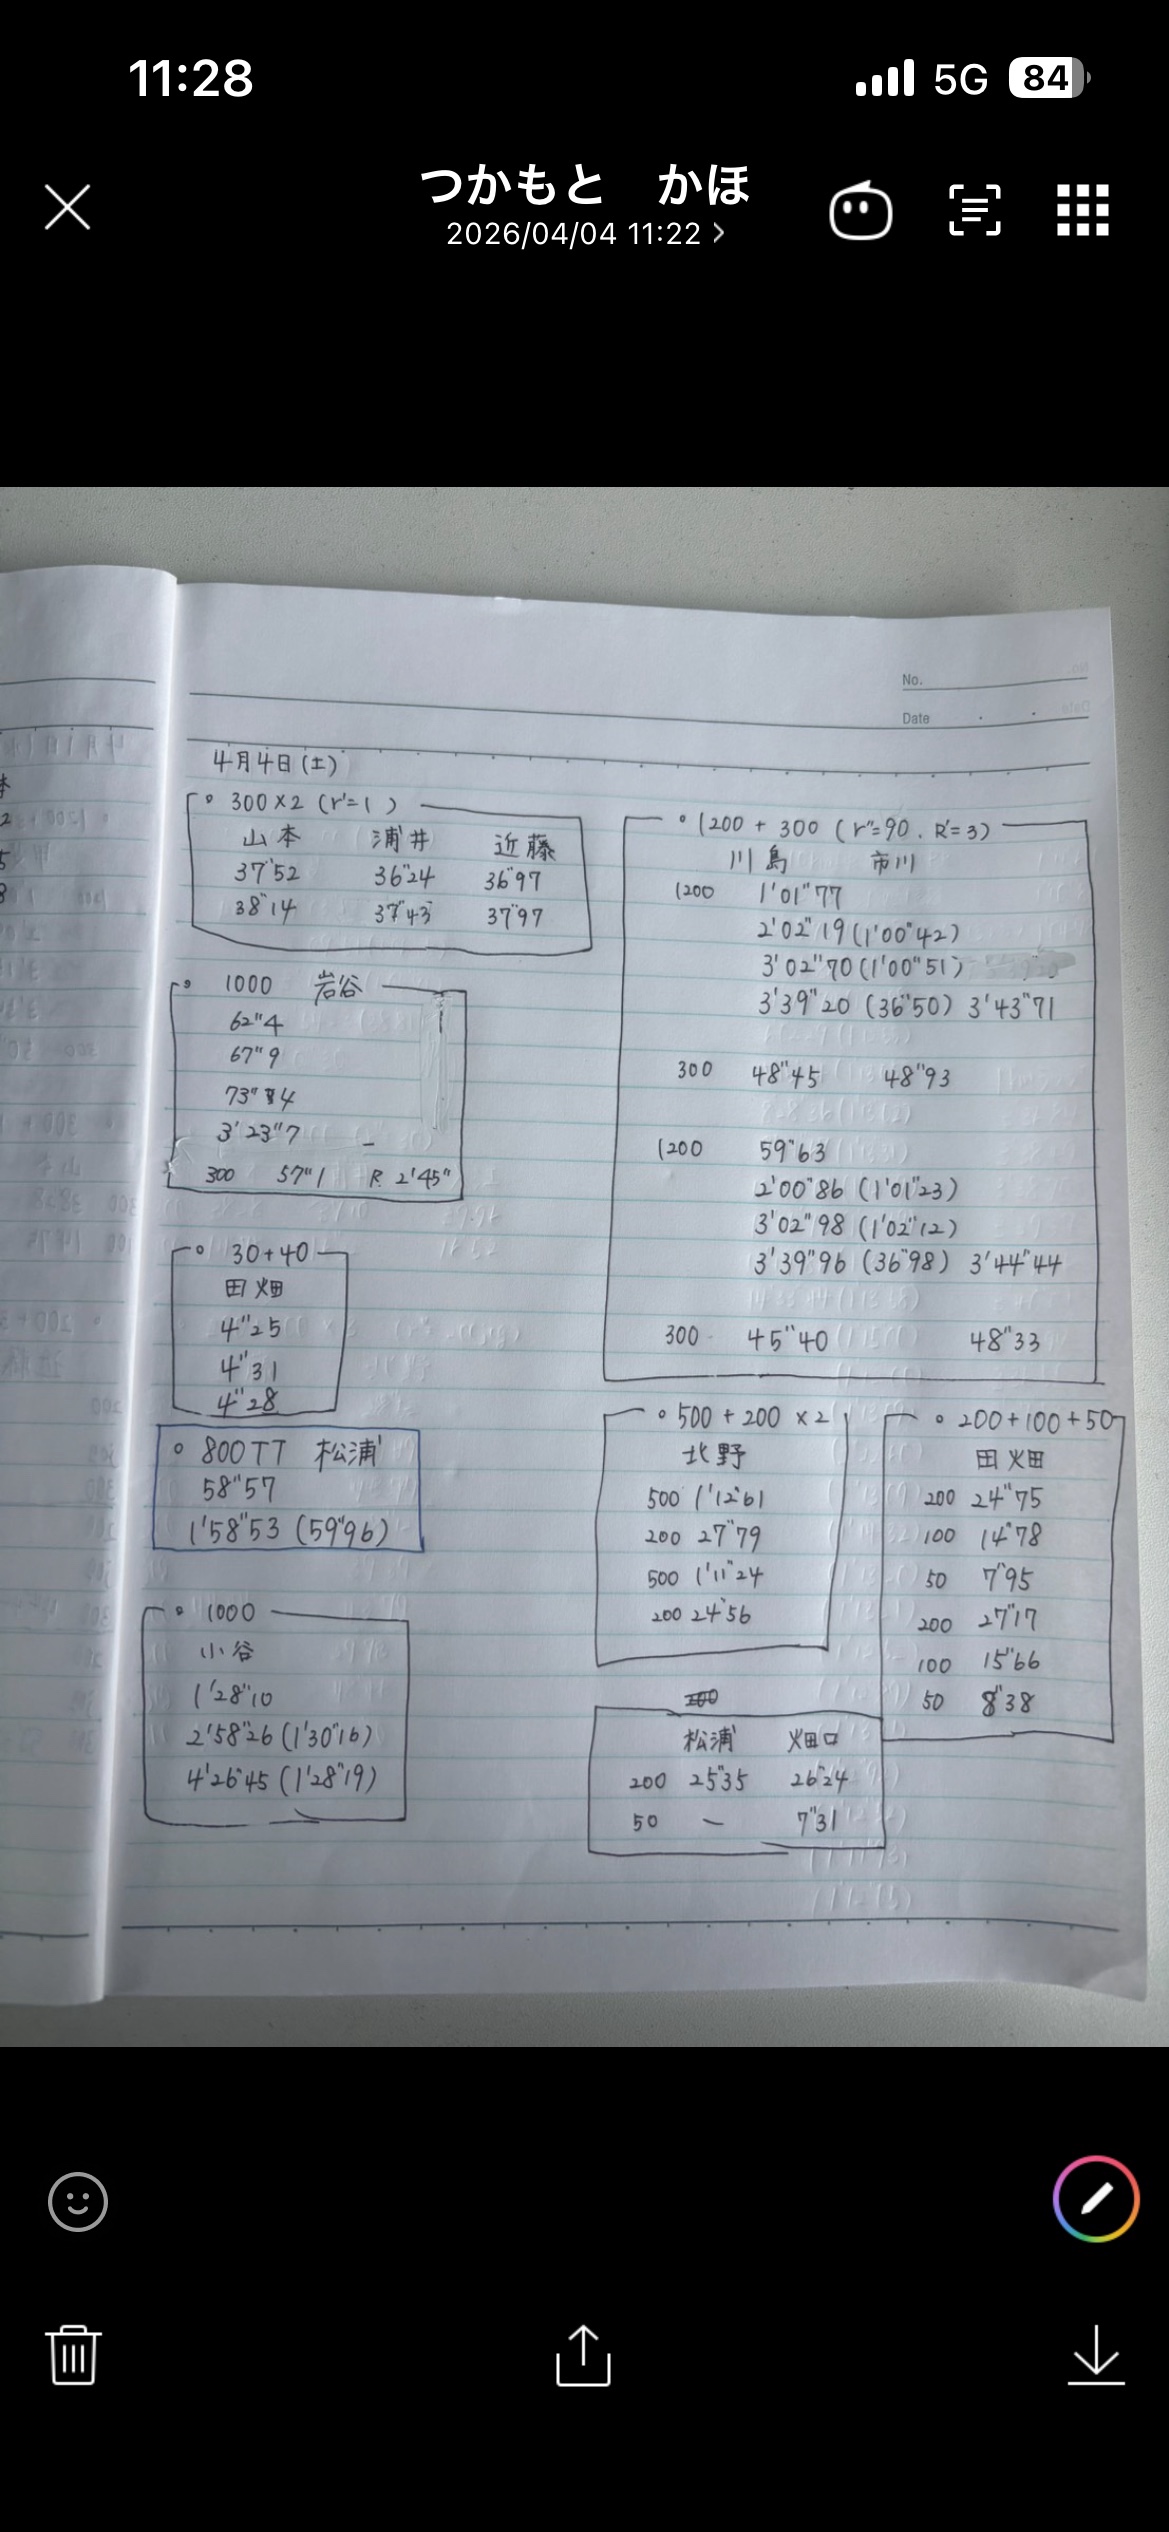 11:28
5G 84
つかもと かほ
2026/04/04 11:22 >
No.
Date
4月4日(土)
300×2 (r'=1 )
山本 浦井 近藤
37"52 36"24 36"97
38"14 37"43 37"97
1000 岩谷
62"4
67"9
73"4
3'23"7
300 57"1 R 2'45"
30+40
田畑
4"25
4"31
4"28
800TT 松浦
58"57
1'58"53 (59"96)
1000
小谷
1'28"10
2'58"26 (1'30"16)
4'26"45 (1'28"19)
1200 + 300 (r"=90. R'=3)
川島 市川
1200 1'01"77
2'02"19 (1'00"42)
3'02"70 (1'00"51)
3'39"20 (36"50) 3'43"71
300 48"45 48"93
1200 59"63
2'00"86 (1'01"23)
3'02"98 (1'02"12)
3'39"96 (36"98) 3'44"44
300 45"40 48"33
500 + 200 ×2
北野
500 1'12"61
200 27"79
500 1'11"24
200 24"56
200+100+50
田畑
200 24"75
100 14"78
50 7"95
200 27"17
100 15"66
50 8"38
松浦 畑口
200 25"35 26"24
50 — 7"31